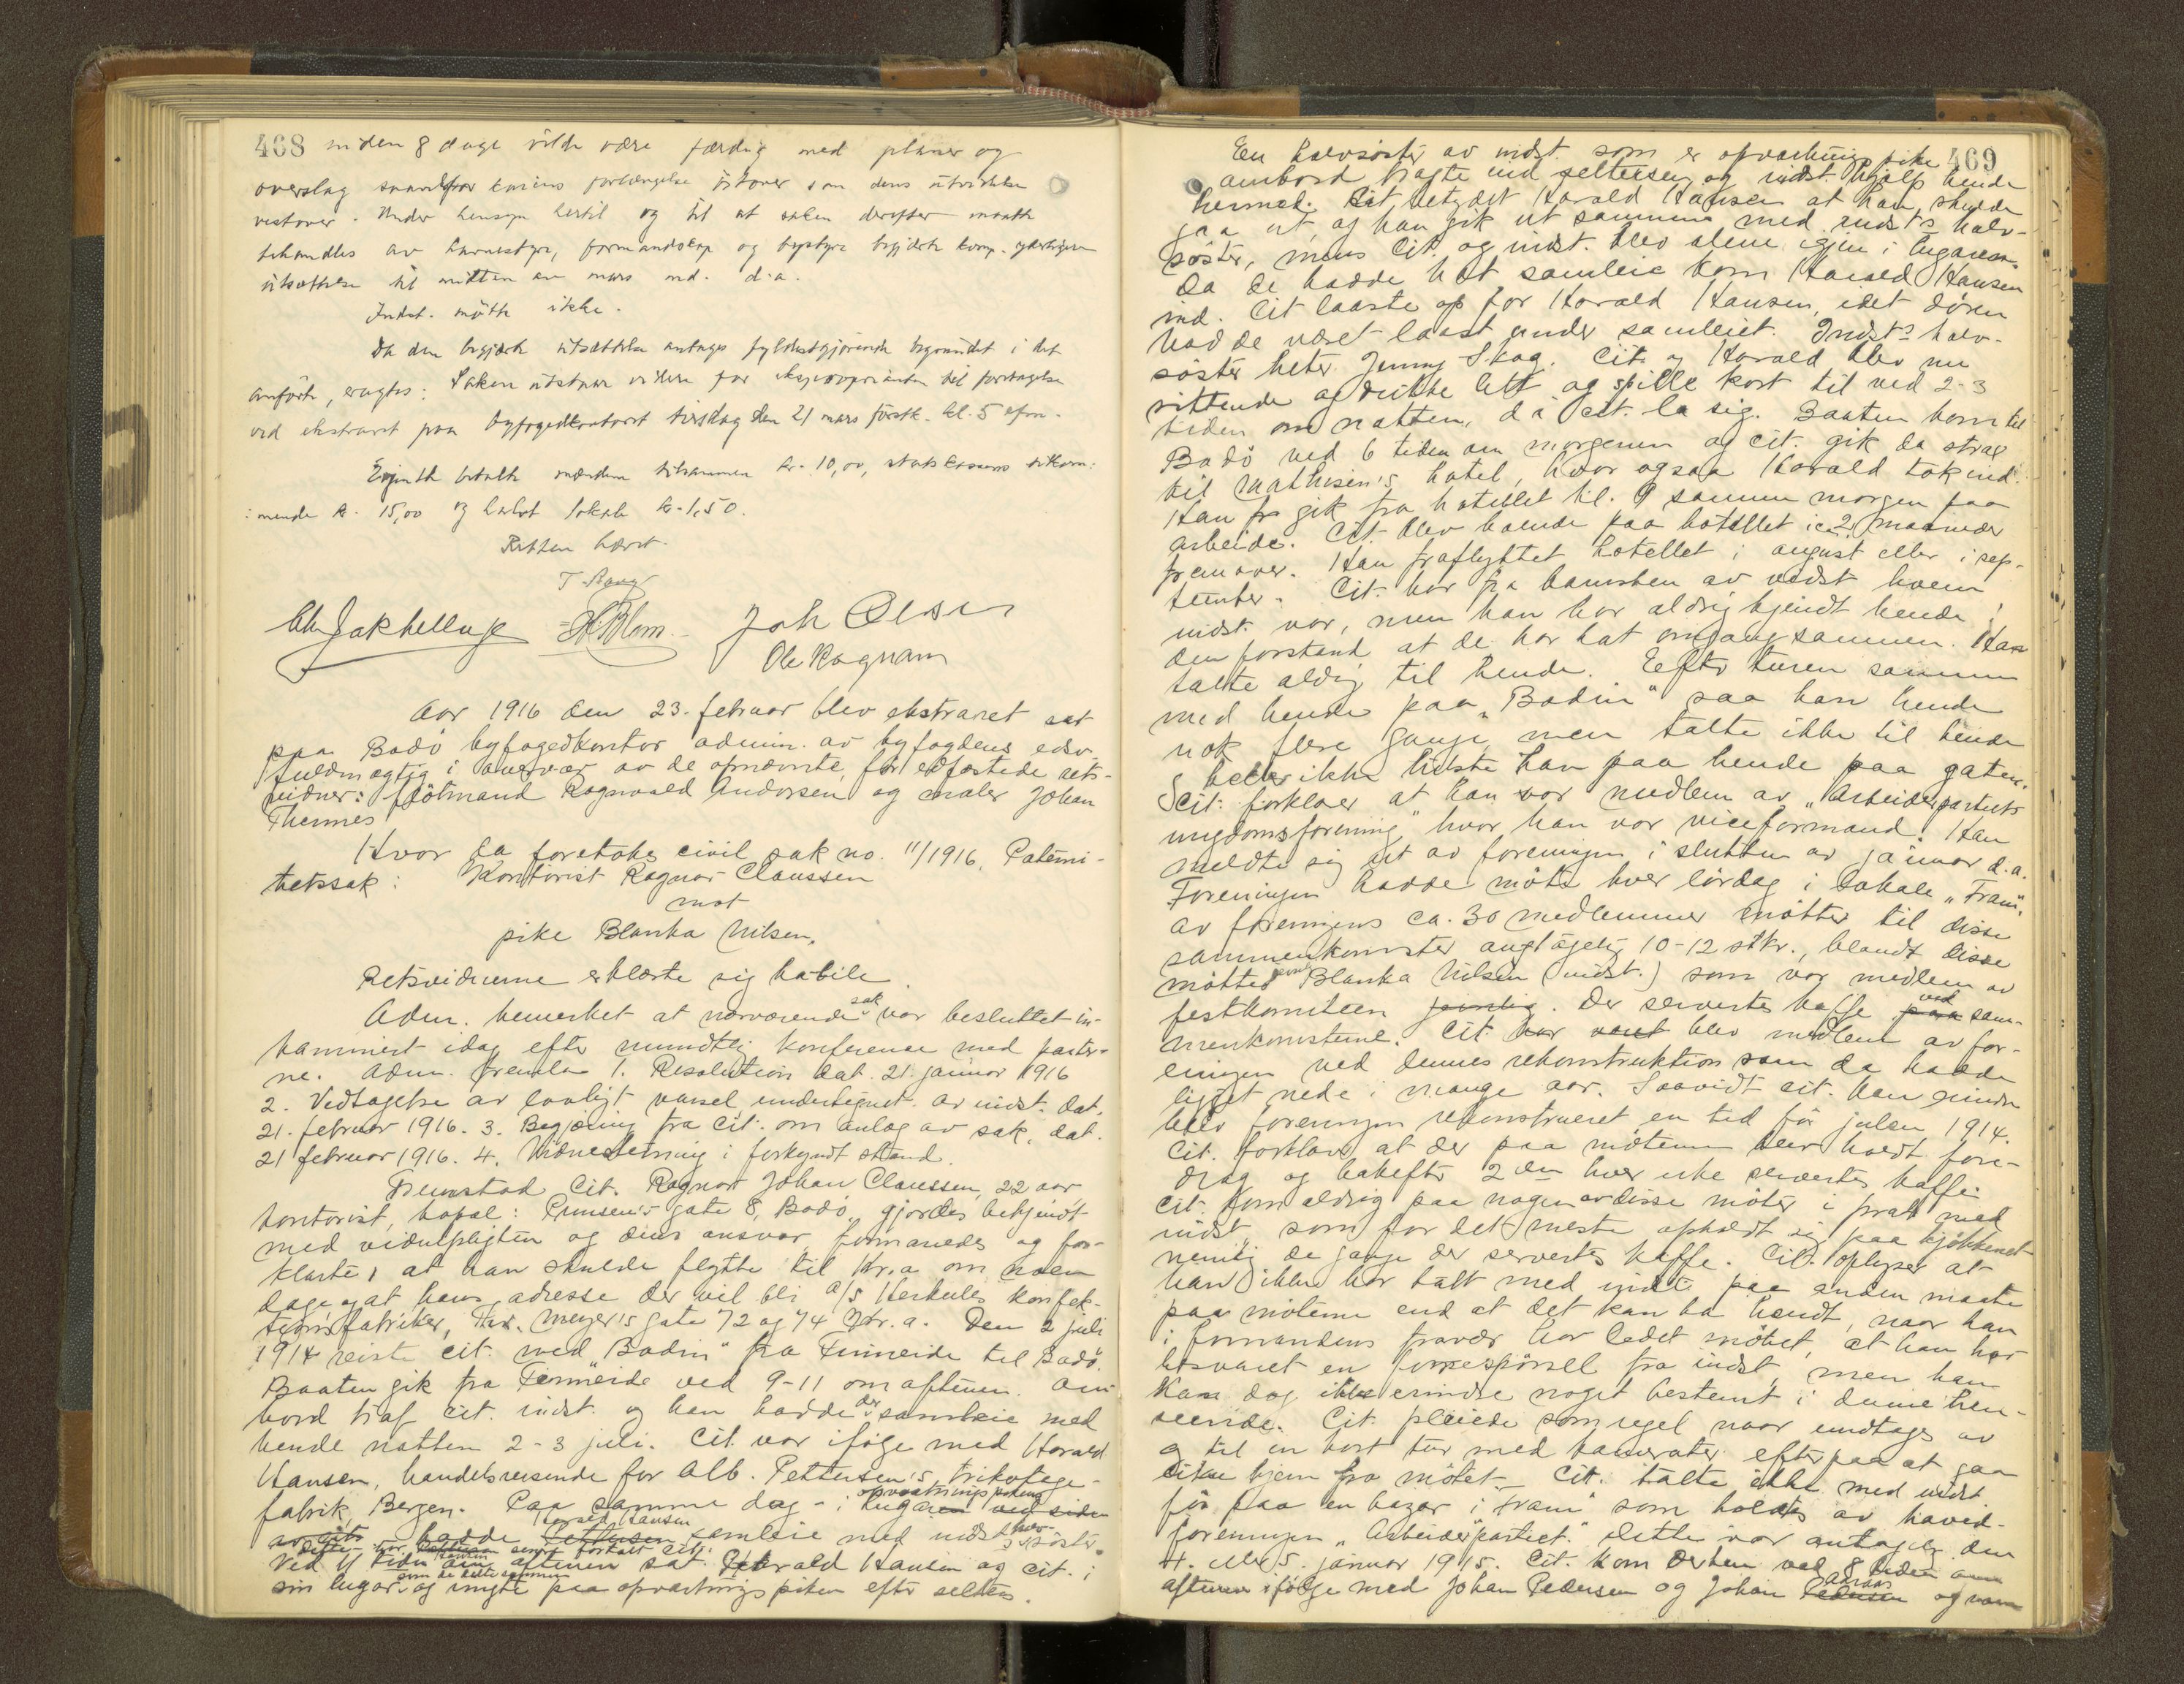 468
inden 8 dage vilde være færdig med planer og
overslag saavel for kaiens forlængelse østover som dens utvidelse
vestover. Under hensyn hertil og til at saken derefter maatte
behandles av havnestyre, formandskap og bystyre begjærte komp. yderligere
utsættelse til midten av mars md. d.a.
Indst. møtte ikke.
Da den begjærte utsættelse antages fyldestgjørende begrundet i det
anførte, eragtes: Saken utstaar videre for ekspropriation til foretagelse
ved ekstraret paa byfogedkontoret tirsdag den 21 mars førstk. kl. 5 efm.
betalte mændene tilsammen kr. 10,00, statskassens tilkom:
:mende kr. 15,00 og lokale kr. 1,50.
Retten hævet.
Chr Jakhelln jr HBlom Joh Olsen
Ole Rognan
Aar 1916 den 23. februar blev ekstraret sat
paa Bodø byfogedkontor admin. av byfogdens edsv.
fuldmægtig i overvær av de opnævnte, før edfæstede rets-
vidner: fløtmand Ragnvald Andersen og maler Johan
Thermes
Hvor da foretokes civil sak no. 11/1916, Paterni-
tetssak: Kontorist Ragnar Claussen
mot
pike Blanka Nilsen.
Retsvidnerne erklærte sig habile.
Adm. bemerket at nærværende sak var besluttet in-
kaminert idag efter mundtlig konferense med parter-
ne. Adm. fremla 1. Resolution dat. 21 januar 1916
2. Vedtagelse av lovligt varsel undertegnet av indst. dat.
21. februar 1916. 3. Begjæring fra cit. om anlæg av sak, dat.
21 februar 1916. 4. Vidnestevning i forkyndt stand.
Fremstod Cit. Ragnar Johan Claussen, 22 aar
kontorist, bopæl: Prinsen's gate 8, Bodø, gjordes bekjendt
med vidnepligten og dens ansvar, formanedes og for-
klarte, at han skulde flytte til Kr.a om noen
dage og at hans adresse der vil bli A/S Herkules konfek-
tionsfabriker, Thv. Meyer's gate 72 og 74 Kr.a. Den 2 juli
1914 reiste cit. med "Bodin" fra Finneide til Bodø.
Baaten gik fra Finneide ved 9-11 om aftenen. Om-
bord traf cit. indst. og han hadde der samleie med
hende natten 2-3 juli. Cit. var ifølge med Harald
Hansen, handelsreisende for Alb. Pettersen's trikotage-
fabrik, Bergen. Paa samme dag - i opvartningspikens lugaren ved siden
av cits hadde Harald Hansen samleie med indst's halv-søster.
dette har Hansen senere fortalt cit.
Ved 11 tiden om aftenen sat Harald Hansen og cit. i
sin lugar, som de delte sammen og ringte paa opvartningspiken efter selters.
469
En halvsøster av indst. som er opvartningspike
ombord bragte ind seltersen og indst. hjalp hende
hermed. Cit. betydet Harald Hansen at han skulde
gaa ut, og han gik ut sammen med indst's halv-
søster, mens Cit. og indst. blev alene igjen i lugaren.
Da de hadde hat samleie kom Harald Hansen
ind. Cit laaste op for Harald Hansen, idet døren
hadde været laast under samleiet. Indst's halv-
søster heter Jenny Skag. Cit. og Harald blev nu
sittende og drikke litt og spille kort til ved 2-3
tiden om natten, da cit. la sig. Baaten kom til
Bodø ved 6 tiden om morgenen og cit. gik da strax
til Mathisen's hotel, hvor ogsaa Harald tok ind.
Han fr gik fra hotellet kl. 9 samme morgen paa
arbeide. Cit. blev boende paa hotellet i ca 2 maaneder
fremover. Han fraflyttet hotellet i august eller i sep-
tember. Cit. har fra barnsben av vidst hvem
indst. var, men han har aldrig kjendt hende i
den forstand at de har hat omgang sammen. Han
talte aldrig til hende. Efter turen sammen
med hende paa "Bodin" saa han hende
nok flere gange, men talte ikke til hende
heller ikke hilste han paa hende paa gaten.
Cit. forklarer at han var medlem av "Arbeiderpartiets
ungdomsforening" hvor han var viceformand. Han
meldte sig ut av foreningen i slutten av januar d.a.
Foreningen hadde møte hver lørdag i lokale "Fram".
Av foreningens ca. 30 medlemmer møtte til disse
sammenkomster antagelig 10-12 stkr., blandt disse
møtte Blanka Nilsen (indst.) som var medlem av
festkomiteen. Der servertes kaffe ved sam-
menkomsterne. Cit. har været blev medlem av for-
eningen ved dennes rekonstruktion som da hadde
ligget nede i mange aar. Saavidt cit. kan erindre
blev foreningen rekonstrueret en tid før julen 1914.
Cit. forklarer at der paa møterne blev holdt fore-
drag og bakefter 2den hver uke servertes kaffe.
Cit. kom aldrig paa nogen av disse møter i prat med
indst. som for det meste opholdt sig paa kjøkkenet
nemlig de gange der servertes kaffe. Cit. oplyser at
han ikke har talt med indst. paa anden maate
paa møterne end at det kan ha hændt, naar han
i formandens fravær har ledet møtet, at han har
besvaret en forespørsel fra indst., men han
kan dog ikke erindre noget bestemt i denne hen-
seende. Cit. pleiede som regel naar undtages av
og til en kort tur med kamerater efterpaa at gaa
like hjem fra møtet. Cit. talte ikke med indst
før paa en bazar i "Fram" som holdtes av hoved-
foreningen "Arbeiderpartiet." Dette var antagelig den
4. eller 5. januar 1915. Cit. kom derhen ved 8 tiden om
aftenen ifølge med Johan Pedersen og Johan og